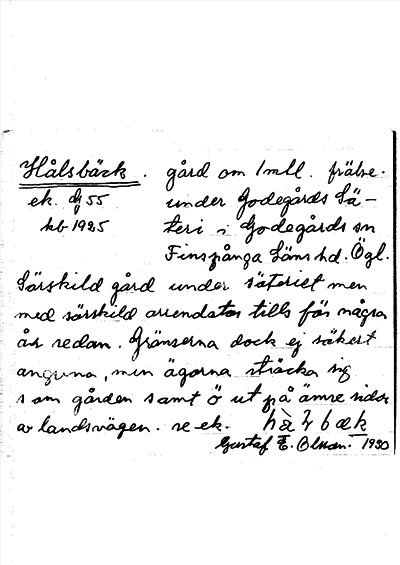 Hålsbäck. gård om 1 mtl. frälse.
ek. dj 55 under Godegårds Sä-
kb 1925 teri i Godegårds sn
Finspånga Läns hd. Ögl.
Särskild gård under säteriet men
med särskild arrendator tills för några
år sedan. Gränserna dock ej säkert
angivna, men ägorna sträcka sig
om gården samt ut på sidor
av landsvägen. se ek.
Gustaf E. Olsson. 1930